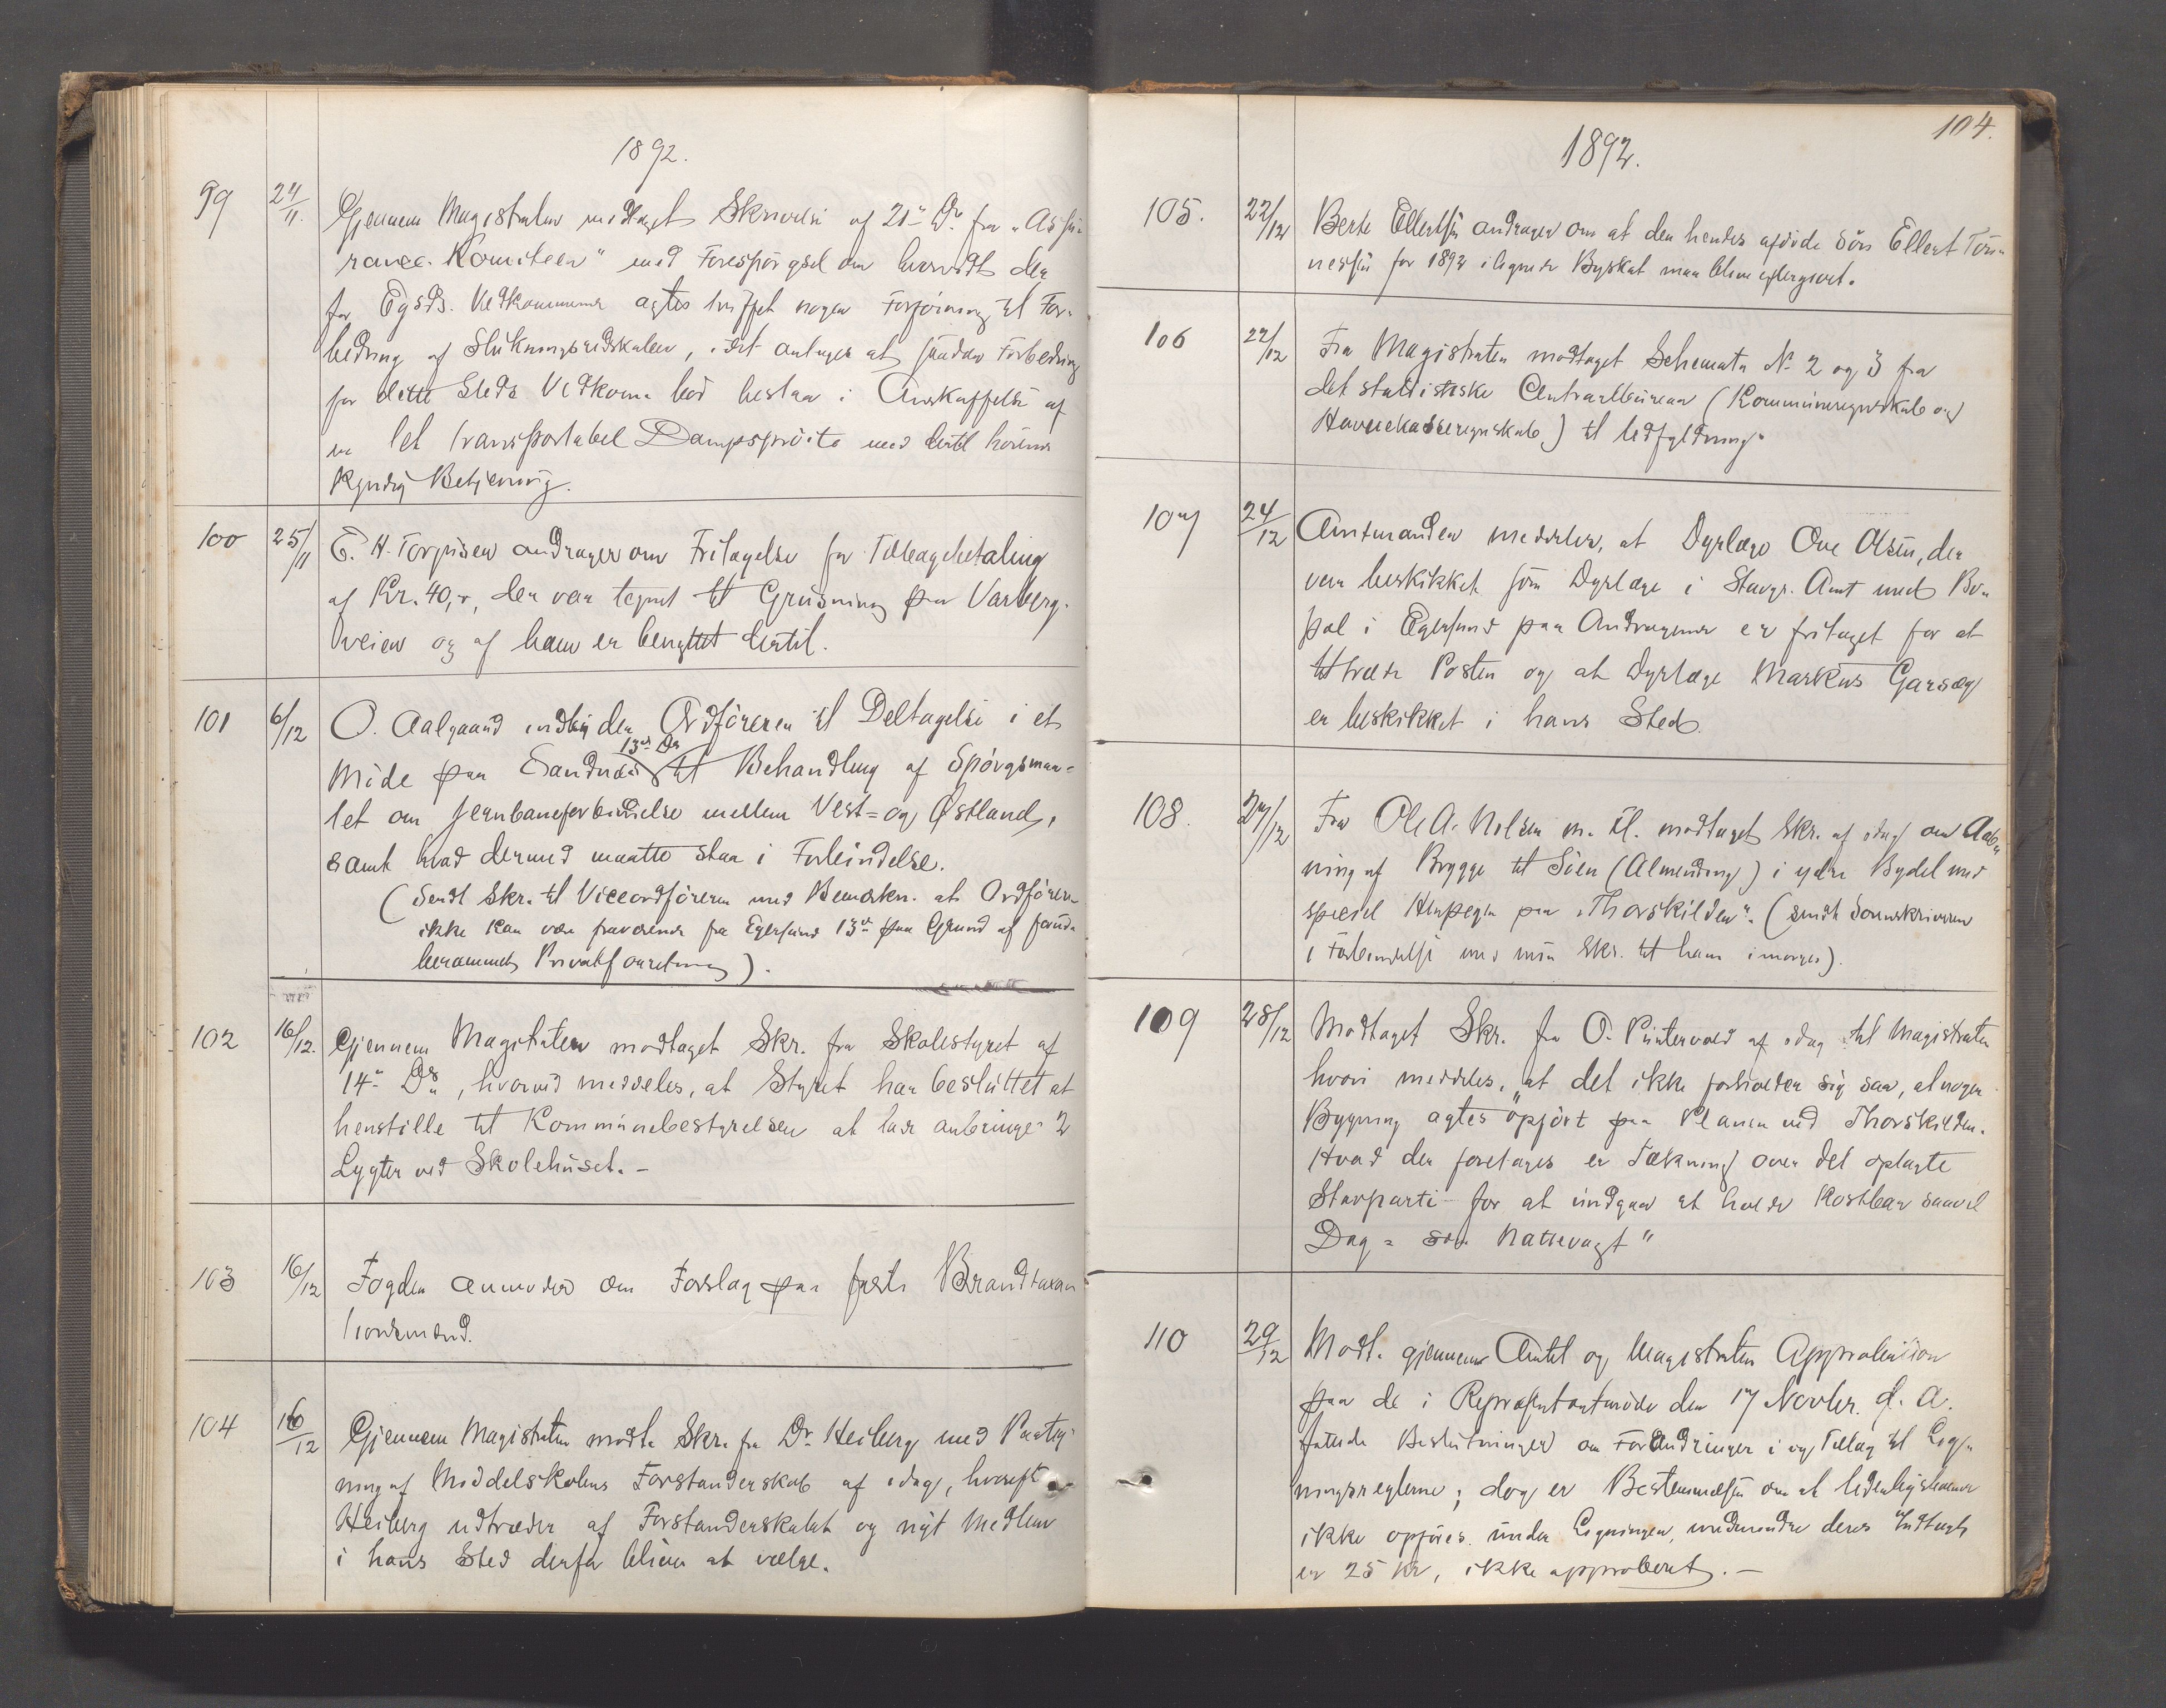 1892.
99 24/11. Gjennem Magistraten modtaget Skrivelse af 21de Ds. fra "Assu-
rance-Komiteen" med Forespørgsel om hvorvidt der
for Egsds. Vedkommende agtes truffet nogen Forføining til For-
bedring af Slukningsredskaber, idet antages at saadan Forbedring
for dette Steds Vedkom. bør bestaa i Anskaffelse af
en let transportabel Dampsprøite med dertil hørende
kyndig Betjening.
100 25/11 E. H. Torjusen andrager om Fritagelse for Tilbagebetaling
af Kr. 40,-, der var tegnet til Grusning paa Varberg-
veien og af ham er benyttet dertil.
101 6/12 O. Aalgaard indbyder Ordføreren til Deltagelse i et
13de Ds
Møde paa Sandnæs til Behandling af Spørgsmaa-
let om Jernbaneforbindelse mellem Vest- og Østland,
samt hvad dermed maatte staa i Forbindelse.
(Sendt Skr. til Viceordføreren med Bemærkn. at Ordføreren
ikke kan være fraværende fra Egersund 13de paa Grund af forud
berammet Privatforretning).
102 16/12. Gjennem Magistraten modtaget Skr. fra Skolestyret af
14de Ds, hvorved meddeles, at Styret har besluttet at
henstille til Kommunebestyrelsen at lade anbringe 2
Lygter ved Skolehuset. -
103 16/12 Fogden anmoder om Forslag paa faste Brandtaxa-
tionsmænd.
104 16/12 Gjennem Magistraten modt. Skr. fra Dr. Heiberg med Paateg-
ning af Middelskolens Forstanderskab af idag, hvorefter
Heiberg udtræder af Forstanderskabet og nyt Medlem
i hans Sted derfor bliver at vælge.
104.
1892.
105. 22/12 Berte Ellertsen andrager om at den hendes afdøde Søn Ellert Tøn-
nessen for 1892 ilignede Byskat maa blive eftergivet.
106 22/12 Fra Magistraten modtaget Schemata No 2 og 3 fra
det statistiske Centralbureau (Kommuneregnskab og
Havnekasseregnskab) til Udfyldning.
107 24/12 Amtmanden meddeler, at Dyrlæge Ove Olsen, der
var beskikket som Dyrlæge i Stavgr. Amt med Bo-
pæl i Egersund paa Andragende er fritaget for at
tiltræde Posten og at Dyrlæge Markus Garsæg
er beskikket i hans Sted.
108. 27/12 Fra Ole A. Nilsen m. fl. modtaget Skr. af idag om Aab-
ning af Brygge til Søen (Almending) i ydre Bydel med
speciel Henpegen paa "Thorskilden". (sendt Sorenskriveren
i Forbindelse med min Skr. til ham imorges).
109 28/12 Modtaget Skr. fra O. Puntervold af idag til Magistraten
hvori meddeles, "at det ikke forholder sig saa, at nogen
Bygning agtes opført paa Planen ved Thorskilden.
Hvad der foretages er Tækning over det oplagte
Stavparti for at undgaa at holde kostbar saavel
Dag- som Nattevagt"
110 29/12 Modt. gjennem Amtet og Magistraten Approbation
paa de i Repræsentantmøde den 17 Novbr. d. A.
fattede Beslutninger om Forandringer i og Tillæg til Lig-
ningsreglerne; dog er Bestemmelsen om at
ikke opføres under Ligningen, medmindre deres Indtægt
er 25 Kr, ikke approberet. -